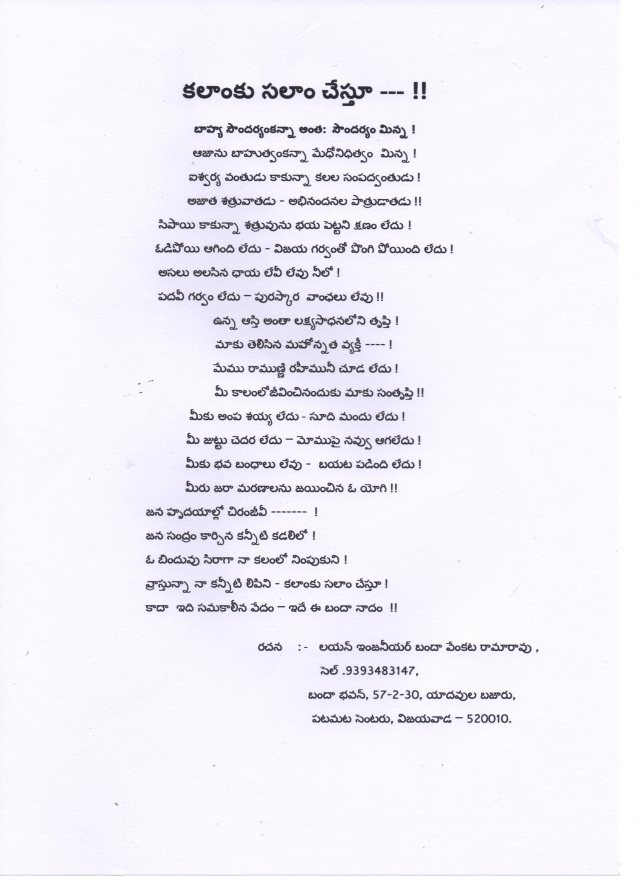 కలాంకు సలాం చేస్తూ --- !!
బాహ్య సౌందర్యంకన్నా అంత: సౌందర్యం మిన్న !
ఆజాను బాహుత్వంకన్నా మేధోనిధిత్వం మిన్న !
ఐశ్వర్య వంతుడు కాకున్నా కలల సంపద్వంతుడు !
అజాత శత్రువాతడు - అభినందనల పాత్రుడాతడు !!
సిపాయి కాకున్నా శత్రువును భయ పెట్టని క్షణం లేదు !
ఓడిపోయి ఆగింది లేదు - విజయ గర్వంతో పొంగి పోయింది లేదు !
అసలు అలసిన ఛాయ లేవీ లేవు నీలో !
పదవీ గర్వం లేదు – పురస్కార వాంఛలు లేవు !!
ఉన్న ఆస్తి అంతా లక్ష్యసాధనలోని తృప్తి !
మాకు తెలిసిన మహోన్నత వ్యక్తీ ---- !
మేము రాముణ్ణి రహీమునీ చూడ లేదు !
మీ కాలంలోజీవించినందుకు మాకు సంతృప్తి !!
మీకు అంప శయ్య లేదు - సూది మందు లేదు !
మీ జుట్టు చెదర లేదు – మోముపై నవ్వు ఆగలేదు !
మీకు భవ బంధాలు లేవు - బయట పడింది లేదు !
మీరు జరా మరణాలను జయించిన ఓ యోగి !!
జన హృదయాల్లో చిరంజీవీ ------- !
జన సంద్రం కార్చిన కన్నీటి కడలిలో !
ఓ బిందువు సిరాగా నా కలంలో నింపుకుని !
వ్రాస్తున్నా నా కన్నీటి లిపిని - కలాంకు సలాం చేస్తూ !
కాదా ఇది సమకాలీన వేదం – ఇదే ఈ బందా నాదం !!
రచన :- లయన్ ఇంజనీయర్ బందా వేంకట రామారావు ,
సెల్ .9393483147,
బందా భవన్, 57-2-30, యాదవుల బజారు,
పటమట సెంటరు, విజయవాడ – 520010.